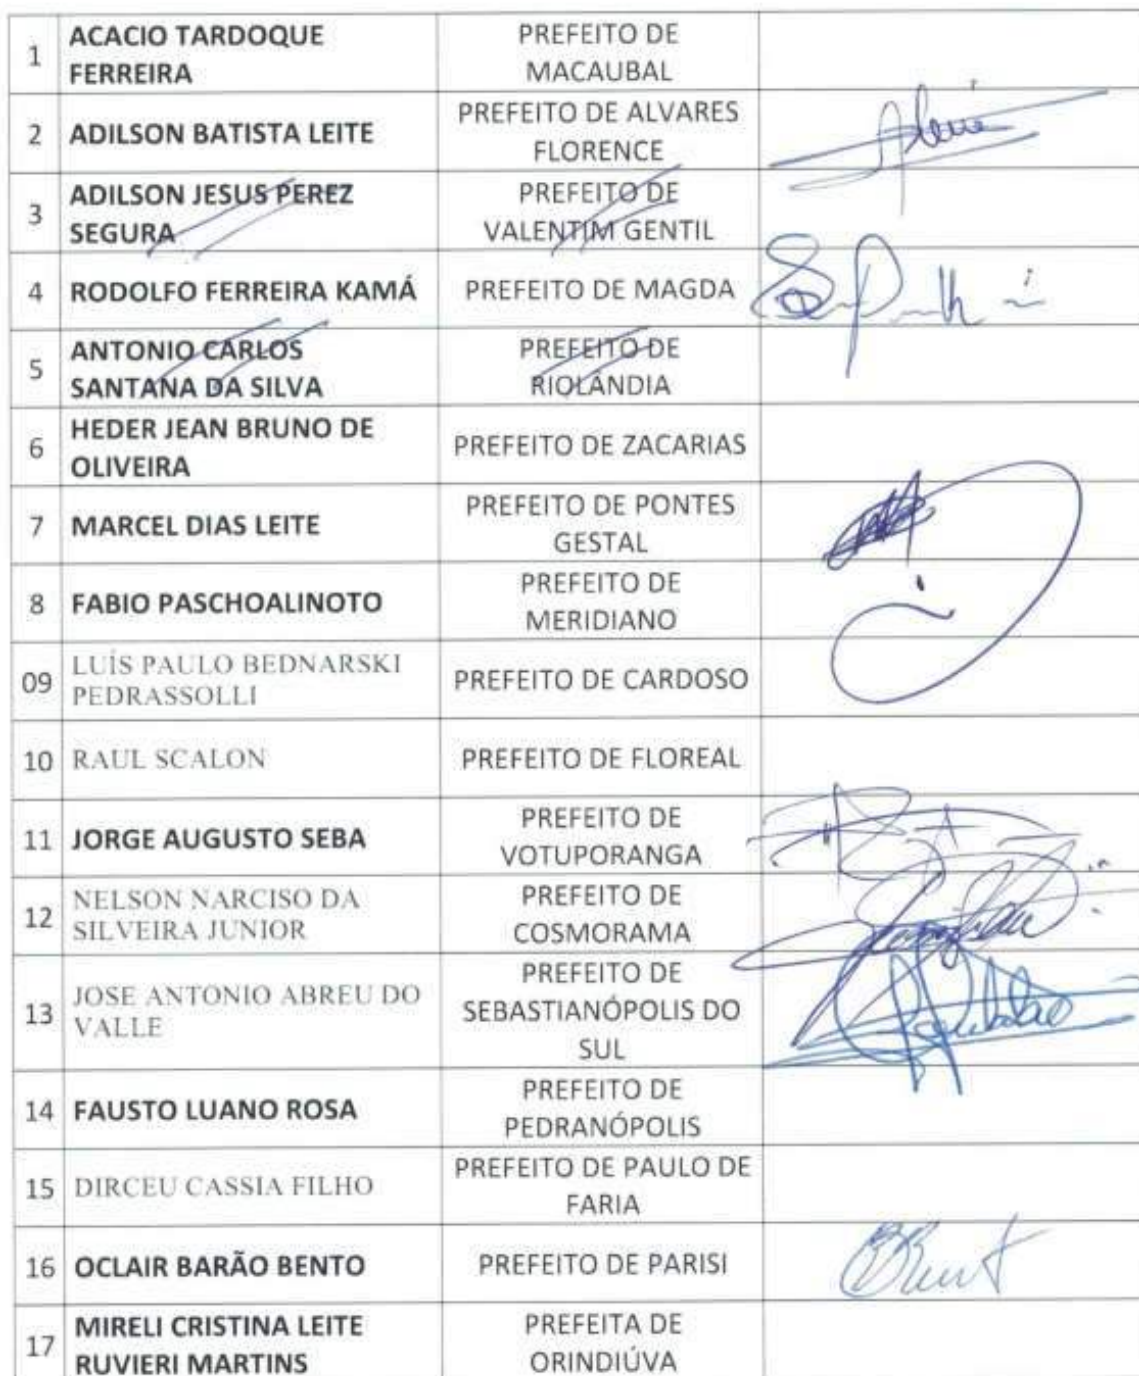 1 ACACIO TARDOQUE PREFEITO DE
FERREIRA MACAUBAL
2 ADILSON BATISTA LEITE PREFEITO DE ALVARES
FLORENCE
3 ADILSON JESUS PEREZ PREFEITO DE
SEGURA VALENTIM GENTIL
4 RODOLFO FERREIRA KAMÁ PREFEITO DE MAGDA
5 ANTONIO CARLOS PREFEITO DE
SANTANA DA SILVA RIOLÂNDIA
6 HEDER JEAN BRUNO DE PREFEITO DE ZACARIAS
OLIVEIRA
7 MARCEL DIAS LEITE PREFEITO DE PONTES
GESTAL
8 FABIO PASCHOALINOTO PREFEITO DE
MERIDIANO
09 LUÍS PAULO BEDNARSKI PREFEITO DE CARDOSO
PEDRASSOLLI
10 RAUL SCALON PREFEITO DE FLOREAL
11 JORGE AUGUSTO SEBA PREFEITO DE
VOTUPORANGA
12 NELSON NARCISO DA PREFEITO DE
SILVEIRA JUNIOR COSMORAMA
13 JOSE ANTONIO ABREU DO PREFEITO DE
VALLE SEBASTIANÓPOLIS DO
SUL
14 FAUSTO LUANO ROSA PREFEITO DE
PEDRANÓPOLIS
15 DIRCEU CASSIA FILHO PREFEITO DE PAULO DE
FARIA
16 OCLAIR BARÃO BENTO PREFEITO DE PARISI
17 MIRELI CRISTINA LEITE PREFEITA DE
RUVIERI MARTINS ORINDIÚVA